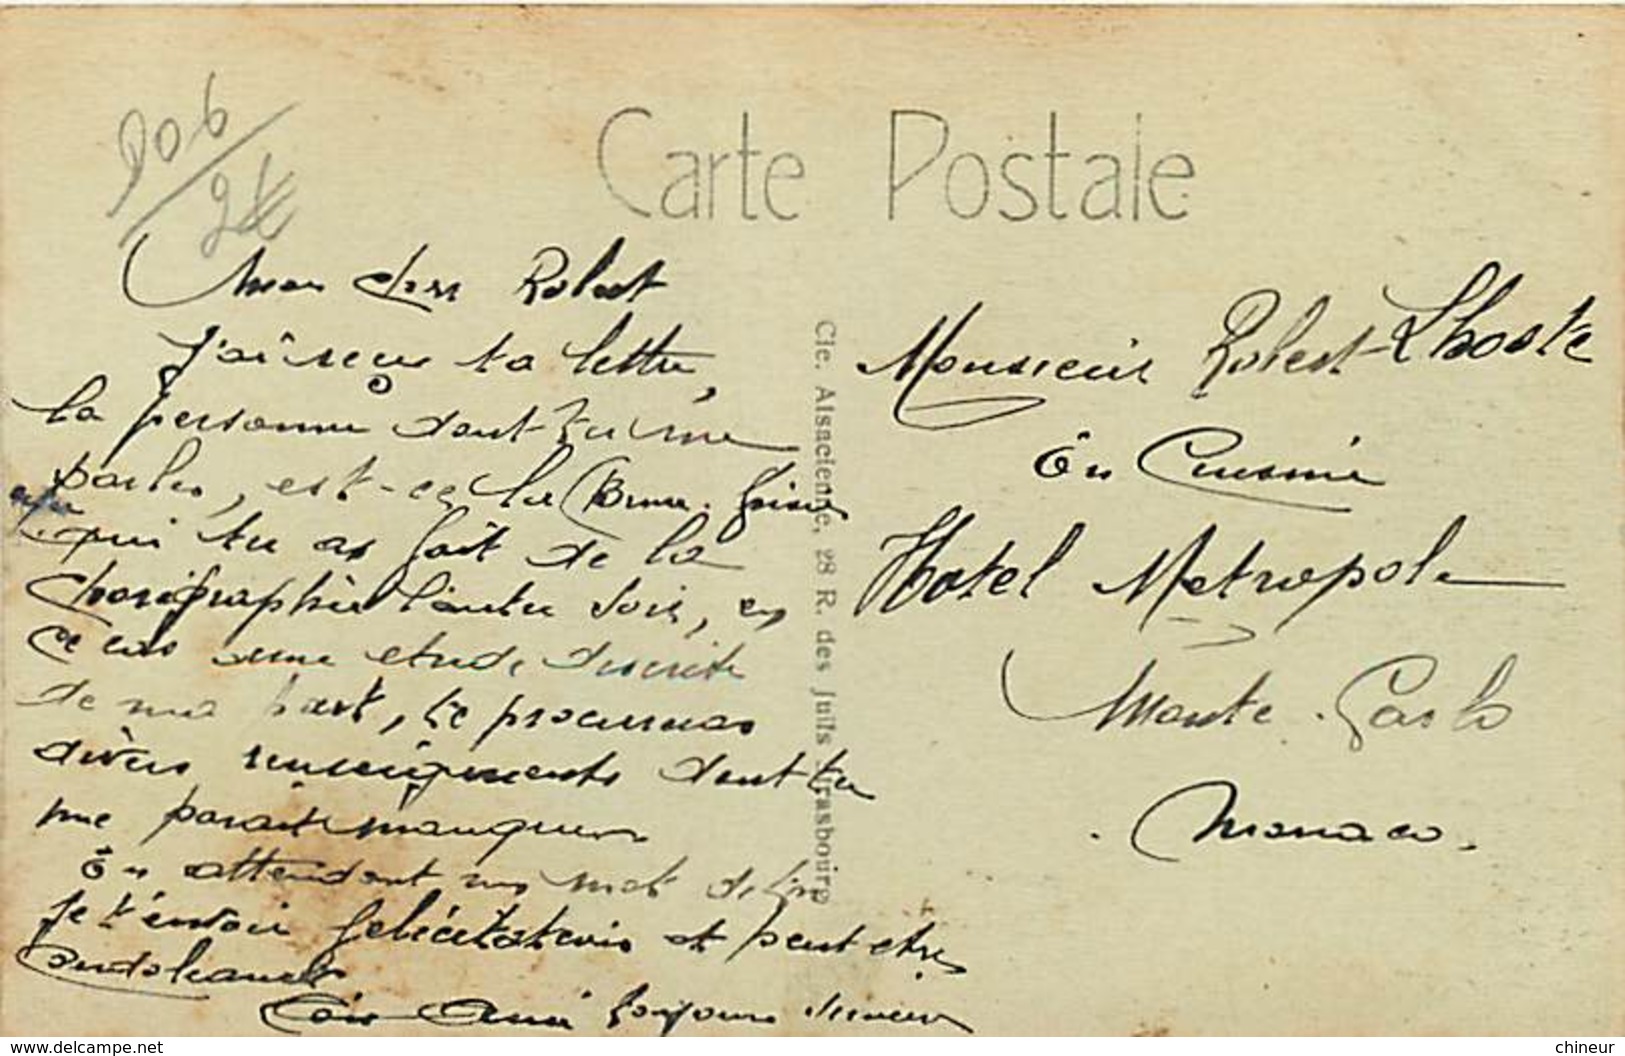 906
2€
Carte Postale
Mon cher Robert
J'ai reçu ta lettre,
la personne dont tu me
parles, est-ce la Brune
qui tu as fait de la
choregraphie l'autre soir, en
ce cas une etude discrète
de ma part, te procureras
divers renseignements dont tu
me parait manquer
En attendant un mot de toi
Je t'envoie felicitations et peut etre
condoleances
Ton Ami toujours
Cie. Alsacienne, 28 R. des Juifs Strasbourg
Monsieur Robert Lhoste
En Cuisine
Hotel Metropole
Monte-Carlo
Monaco.
delcampe.net
chineur